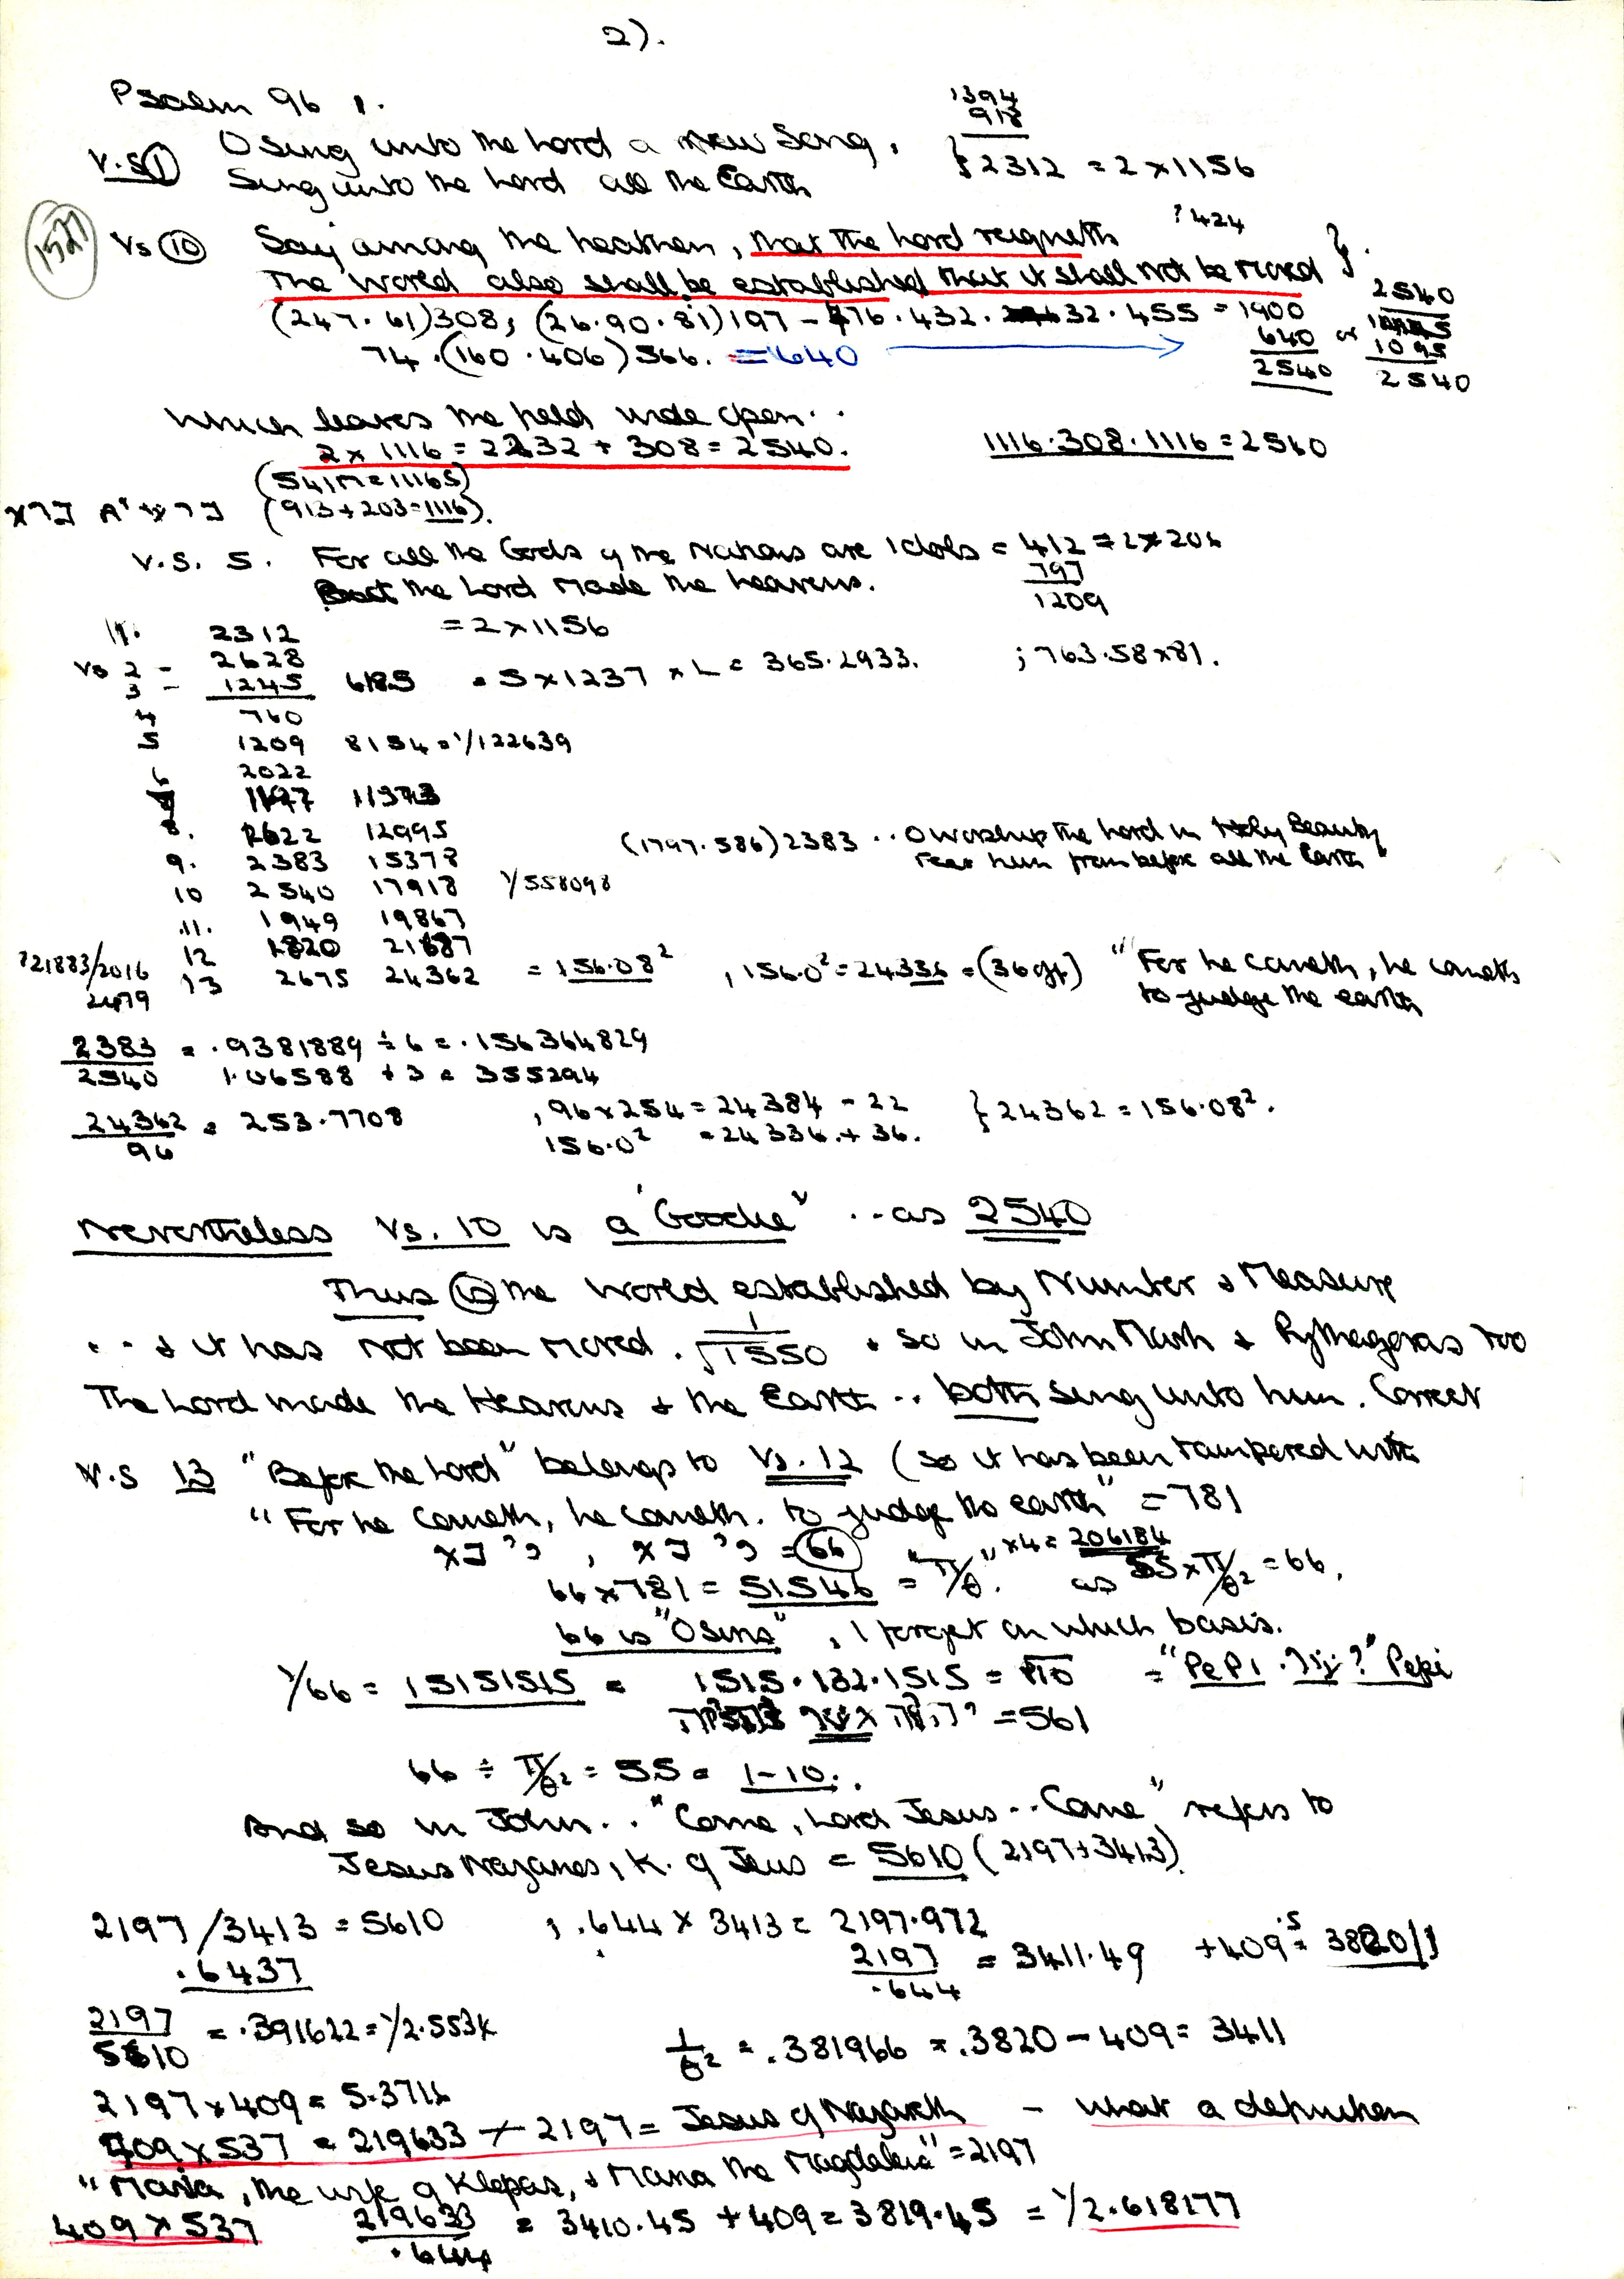 2).
Psalm 96 1.
V.S ① O Sing unto the Lord a new Song,
Sing unto the Lord all the Earth
1394
918
} 2312 = 2 x 1156
1521
Vs ⑩ Say among the heathen, that the Lord reigneth ? 424
The World also shall be established that it shall not be moved }.
(247. 61) 308, (26. 90. 81) 197 - 476. 432. 32. 455 = 1900
74. (160. 406) 566. = 640
640
2540
2540
or
1095
2540
Which leaves the field wide open..
2 x 1116 = 2232 + 308 = 2540.
1116. 308. 1116 = 2540
(913 + 203 = 1116).
V.S. 5. For all the Gods of the Nations are Idols = 412 = 2 x 206
But the Lord made the heavens.
797
1209
1. 2312 = 2 x 1156
Vs 2 - 2628
3 - 1245 6185 = 5 x 1237 x L = 365.2933. ; 763.58 x 81.
4 760
5 1209 8154 = 1/122639
6 2022
7 1197 11373
8. 1622 12995
9. 2383 15378
(1797. 586) 2383 .. O worship the Lord in Holy Beauty
Fear him from before all the Earth"
10 2540 17918 1/558098
11. 1949 19867
12 1820 21687
?21883/2016
2479
13 2675 24362 = 156.08² , 156.0² = 24336 = (36 gf) "For he cometh, he cometh
to judge the earth
2383/2540 = .9381889 ÷ 6 = .156364829
1.06588 ÷ 3 = 355294
24362/96 = 253.7708
, 96 x 254 = 24384 - 22
156.0² = 24336. + 36.
} 24362 = 156.08².
Nevertheless Vs. 10 is a "Goodie" .. as 2540
Thus is the World established by Number & Measure
.. & it has not been moved. 1/√1550 & so in John Mark & Pythagoras too
The Lord made the Heavens & the Earth .. both sing unto him. Correct
V.S 13 "Before the Lord" belongs to Vs. 12 (so it has been tampered with
"For he Cometh, he cometh. to judge the earth" = 781
= 66
x4 = 206184
66 x 781 = 51546 = "π/θ". as 55 x π/θ² = 66.
66 is "Osiris", I forget on which basis.
1/66 = 15151515 = 1515. 132. 1515 = √10 = "PePi ? Pepi
= 561
66 ÷ π/θ² = 55 = 1-10.
And so in John.. "Come, Lord Jesus .. Come" refers to
Jesus Nazarios, K. of Jews = 5610 (2197 + 3413).
2197/3413 = 5610 ; .644 x 3413 = 2197.972
.6437
2197/.644 = 3411.49 + 409.5 = 3820//
2197/5610 = .391622 = 1/2.553k
1/θ² = .381966 = .3820 - 409 = 3411
2197 x 409 = 5.3716
409 x 537 = 219633 → 2197 = Jesus of Nazareth - what a definition
"Maria, the wife of Klopas, & Maria the Magdalene" = 2197
409 x 537 219633/.644 = 3410.45 + 409 = 3819.45 = 1/2.618177